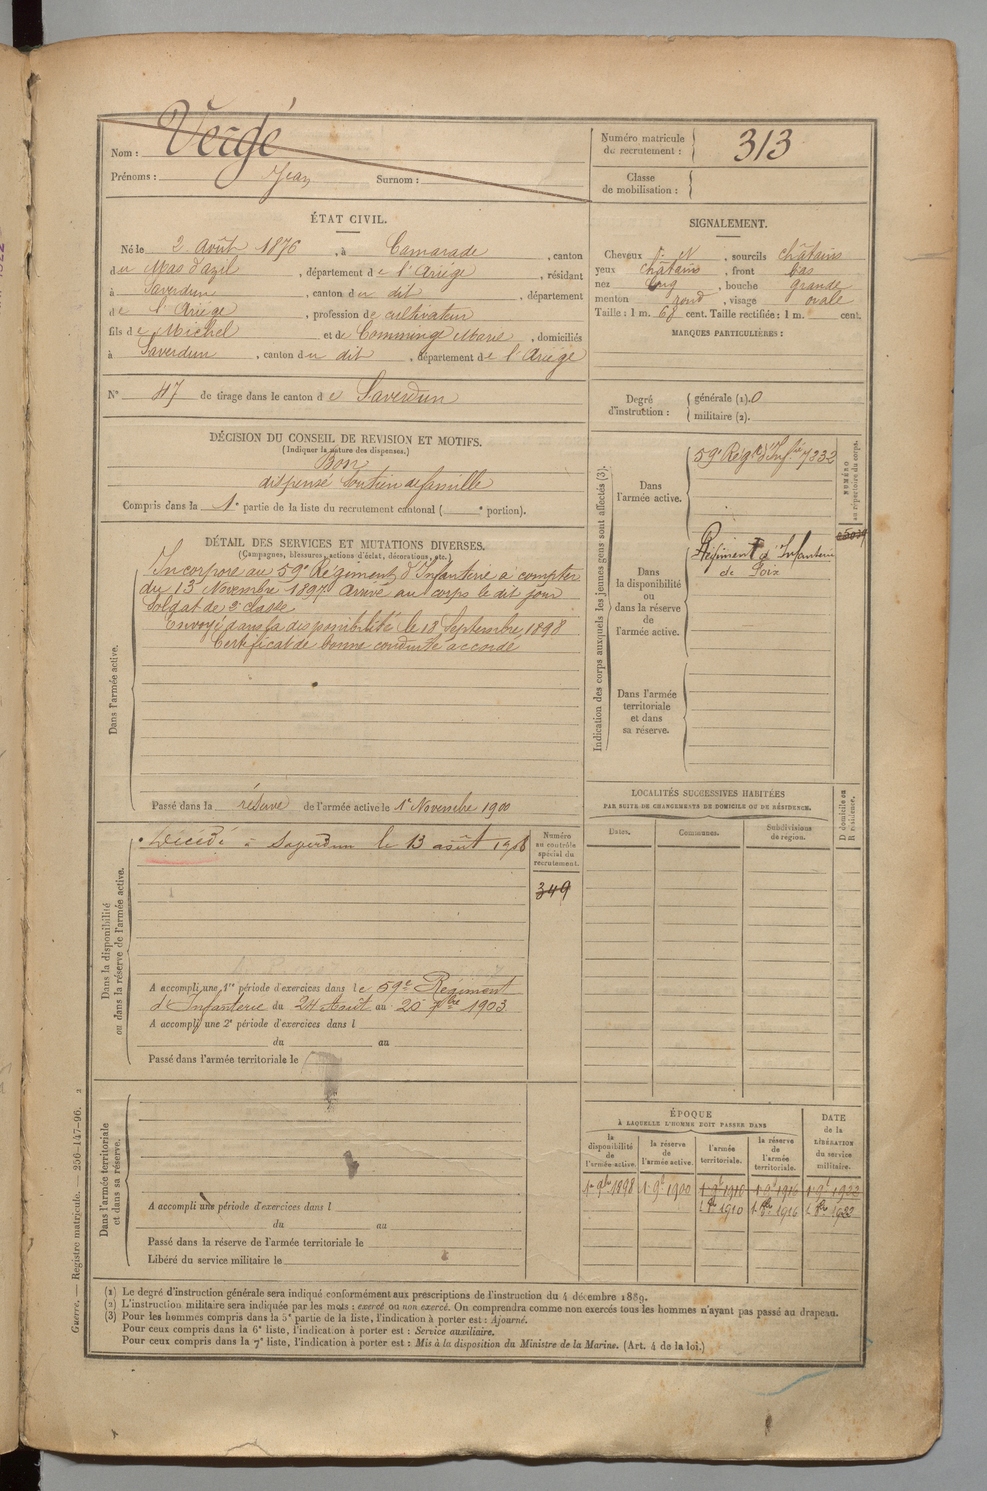 Nom : Vergé
Prénoms : Jean Surnom :
Numéro matricule du recrutement : 313
Classe de mobilisation :
ÉTAT CIVIL.
Né le 2 Août 1876, à Camarade, canton
du Mas d'azil, département de l'Ariège, résidant
à Saverdun, canton du dit, département
de l'Ariège, profession de cultivateur
fils de Michel et de Comminge Marie, domiciliés
à Saverdun, canton du dit, département de l'Ariège
N° 47 de tirage dans le canton de Saverdun
SIGNALEMENT.
Cheveux N, sourcils châtains
yeux châtains, front bas
nez long, bouche grande
menton rond, visage ovale
Taille : 1 m. 67 cent. Taille rectifiée : 1 m. cent.
MARQUES PARTICULIÈRES :
Degré d'instruction : générale (1). 0
militaire (2).
DÉCISION DU CONSEIL DE REVISION ET MOTIFS.
(Indiquer la nature des dispenses.)
Bon
dispensé Soutien de famille
Compris dans la 1e partie de la liste du recrutement cantonal ( e portion).
DÉTAIL DES SERVICES ET MUTATIONS DIVERSES.
(Campagnes, blessures, actions d'éclat, décorations, etc.)
Dans l'armée active.
Incorporé au 59e Régiment d'Infanterie à compter
du 13 Novembre 1897. Arrivé au corps le dit jour
Soldat de 2e classe
Envoyé dans la disponibilité le 18 Septembre 1898
Certificat de bonne conduite accordé
Passé dans la réserve de l'armée active le 1er Novembre 1900
Indication des corps auxquels les jeunes gens sont affectés (3).
NUMÉRO au répertoire du corps.
Dans l'armée active.
59e Régt d'Infrie 7332
Dans la disponibilité ou dans la réserve de l'armée active.
Régiment d'Infanterie
de Foix
Dans l'armée territoriale et dans sa réserve.
Dans la disponibilité ou dans la réserve de l'armée active.
Décédé à Saverdun le 13 août 1906
Numéro au contrôle spécial du recrutement.
349
A accompli une 1re période d'exercices dans le 59e Régiment
d'Infanterie du 24 Août au 20 7bre 1903
A accompli une 2e période d'exercices dans l
du au
Passé dans l'armée territoriale le
LOCALITÉS SUCCESSIVES HABITÉES
PAR SUITE DE CHANGEMENTS DE DOMICILE OU DE RÉSIDENCE.
Dates. Communes. Subdivisions de région.
D domicile ou R résidence.
Dans l'armée territoriale et dans sa réserve.
A accompli une période d'exercices dans l
du au
Passé dans la réserve de l'armée territoriale le
Libéré du service militaire le
ÉPOQUE
À LAQUELLE L'HOMME DOIT PASSER DANS
la disponibilité de l'armée active.
la réserve de l'armée active.
l'armée territoriale.
la réserve de l'armée territoriale.
DATE de la LIBÉRATION du service militaire.
1er 9bre 1898 1er 9e 1900 1er 9e 1910 1er 9e 1916 1er 9e 1922
1910 1916 1922
(1) Le degré d'instruction générale sera indiqué conformément aux prescriptions de l'instruction du 4 décembre 1889.
(2) L'instruction militaire sera indiquée par les mots : exercé ou non exercé. On comprendra comme non exercés tous les hommes n'ayant pas passé au drapeau.
(3) Pour les hommes compris dans la 5e partie de la liste, l'indication à porter est : Ajourné.
Pour ceux compris dans la 6e liste, l'indication à porter est : Service auxiliaire.
Pour ceux compris dans la 7e liste, l'indication à porter est : Mis à la disposition du Ministre de la Marine. (Art. 4 de la loi.)
Guerre. — Registre matricule. — 256-147-96. 2